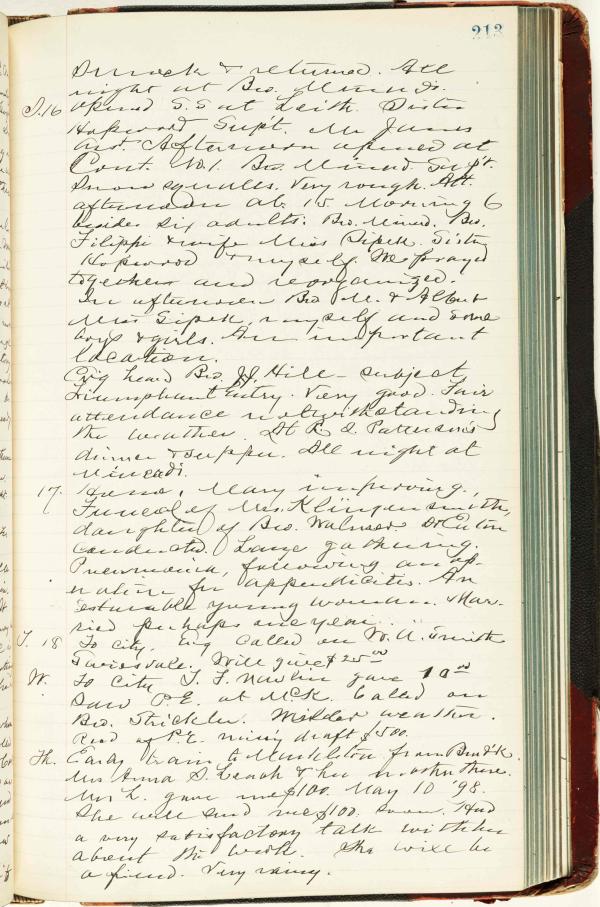 213
& returned. All
night at Bro. Minnd's.
S. 16 opened S.S at Leith. Sister
Hopwood Supt. Mr James
Asst. Afternoon opened at
Cont. No. 1. Bro. Minnd Supt.
Snow squalls. Very rough. Att.
afternoon at 15 Morning 6
besides six adults: Bro. Minnd, Bro.
Filippi & wife Miss Sipek. Sister
Hopwood & myself. We prayed
together and reorganized.
In afternoon Bro M. & Albert
Miss Sipek, myself and some
boys & girls. An important
location.
Ev'g heard Bro. J.J. Hill - subject
Triumphant Entry. Very good. Fair
attendance notwithstanding
the weather. At R. S. Patterson's
dinner & supper. All night at
Minnd's.
17. Home, Mary improving.
Funeral of Mrs. Klingensmith,
daughter of Bro. Dr Eaton
conducted. Large gathering.
Pneumonia, following an op-
eration for appendicitis. An
estimable young woman. Mar-
ried perhaps one year.
T. 18 To city. Ev'g called on W. A. Smith
Will give $25 00
W. To City T. F. gave 10 00
Saw P.E. at McK. Called on
Bro. Strickler. Milder weather.
Recd of P.E. draft $500.
Th. Early train to from Brad'k.
Mrs Anna S. Leach & her mother there.
Mrs L. gave me $100. May 10 '98.
She will send me $100. soon. Had
a very satisfactory talk with her
about the work. She will be
a friend. Very rainy.